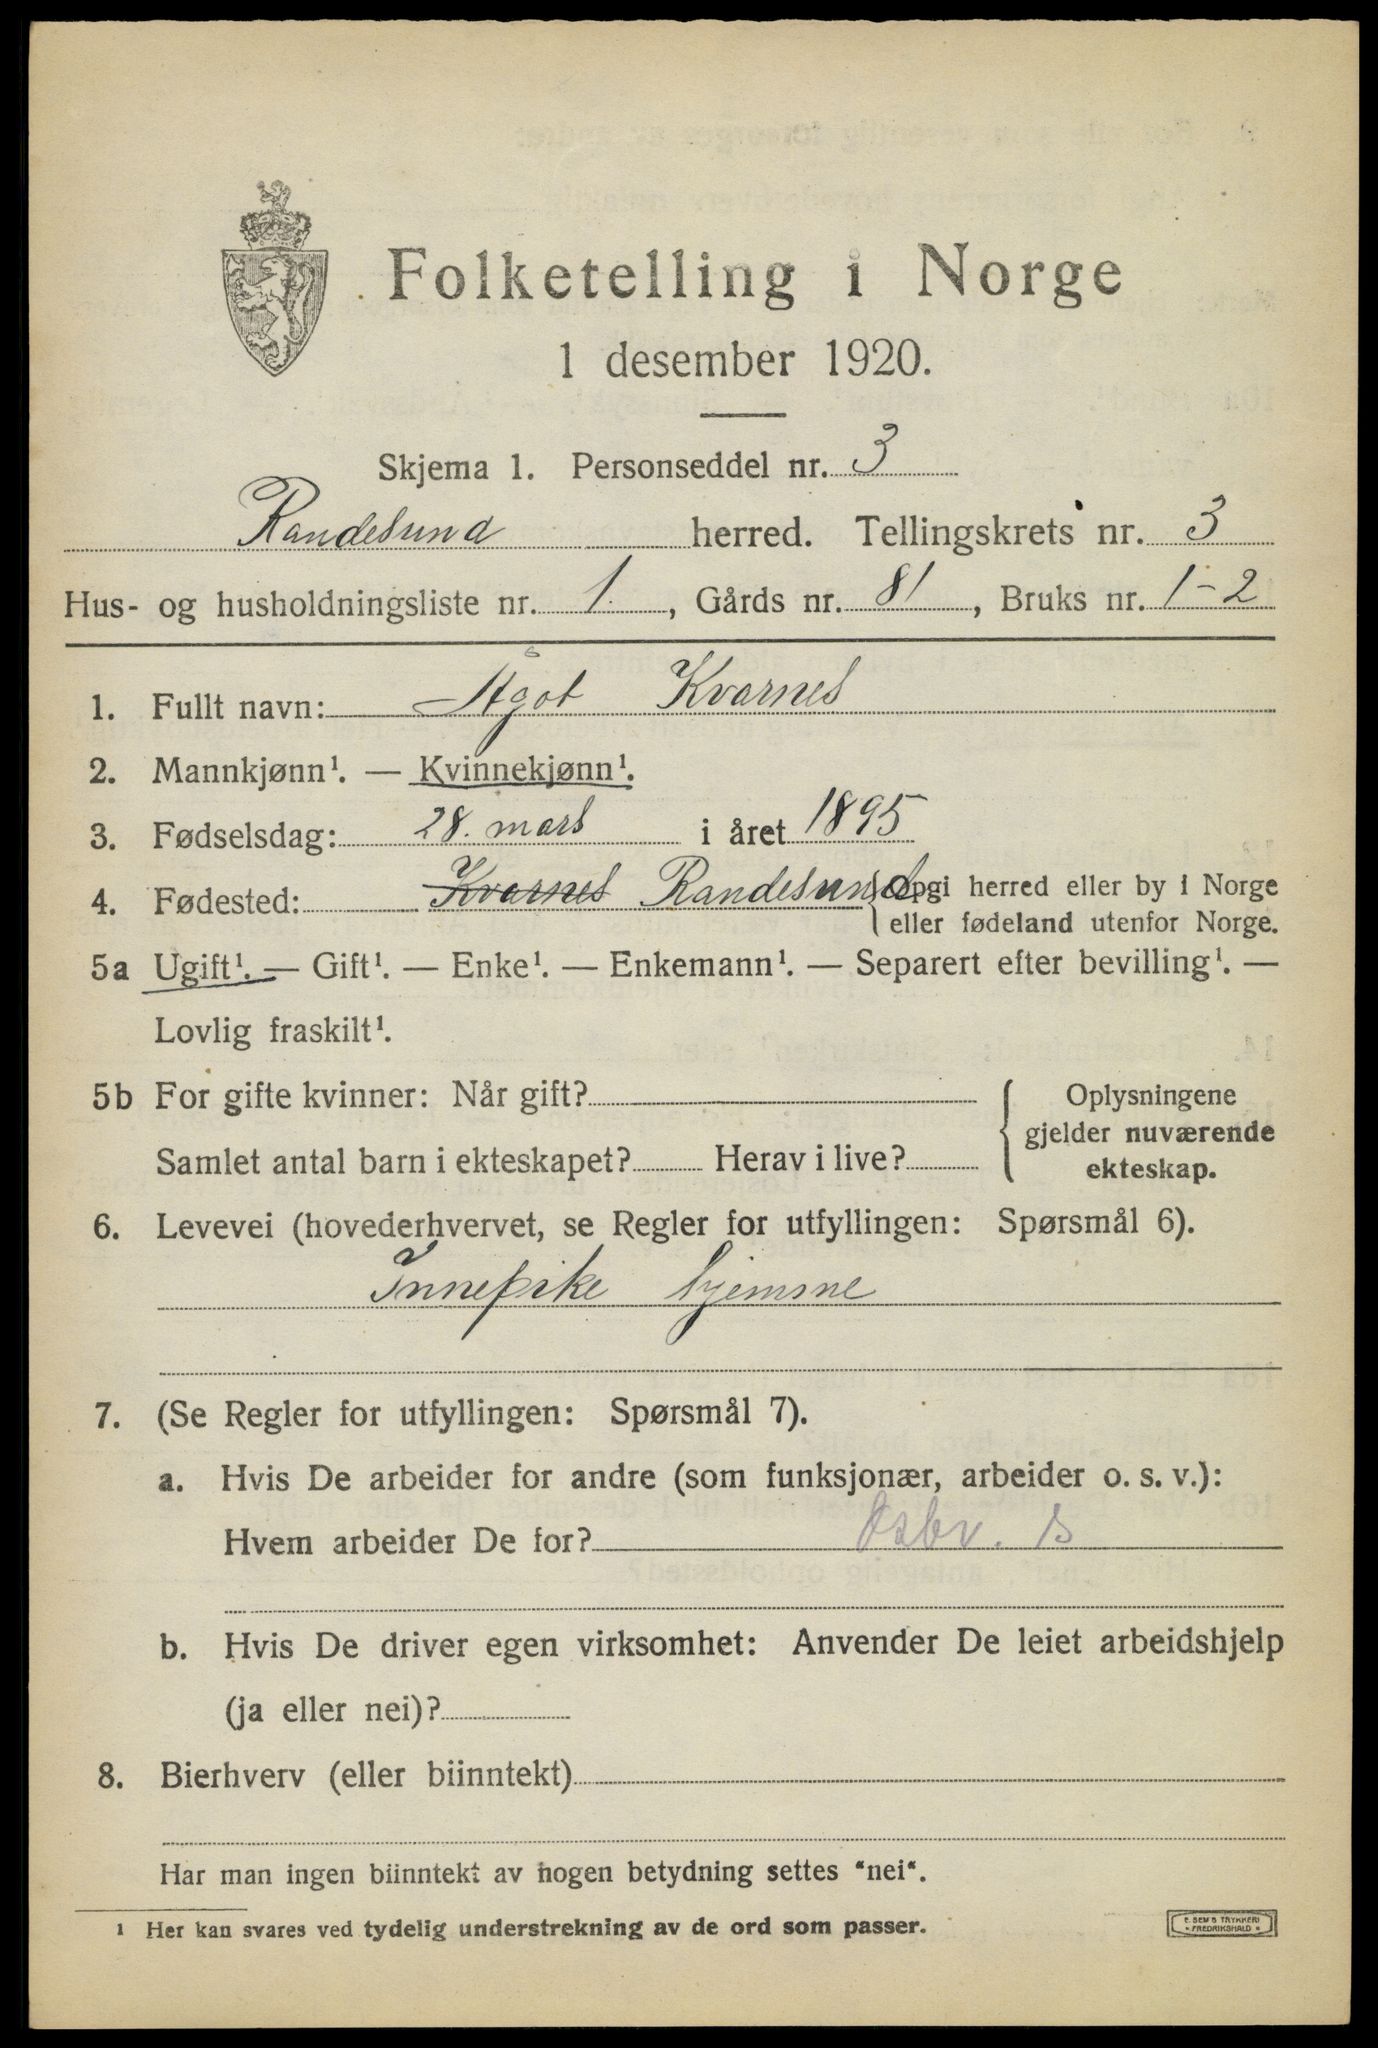 Folketelling i Norge
1 desember 1920.
Skjema 1. Personseddel nr. 3
Randesund herred. Tellingskrets nr. 3
Hus- og husholdningsliste nr. 1. , Gårds nr. 81 , Bruks nr. 1-2
1. Fullt navn: Ågot Kvarnes
2. Mannkjønn¹. — Kvinnekjønn¹.
3. Fødselsdag: 28. mars i året 1895
4. Fødested: Kvarnes Randesund { Opgi herred eller by i Norge
eller fødeland utenfor Norge.
5a Ugift¹. — Gift¹. — Enke¹. — Enkemann¹. — Separert efter bevilling¹. —
Lovlig fraskilt¹.
5b For gifte kvinner: Når gift?
Samlet antal barn i ekteskapet? Herav i live?
{ Oplysningene
gjelder nuværende
ekteskap.
6. Levevei (hovederhvervet, se Regler for utfyllingen: Spørsmål 6).
Innepike hjemme
7. (Se Regler for utfyllingen: Spørsmål 7).
a. Hvis De arbeider for andre (som funksjonær, arbeider o. s. v.):
Hvem arbeider De for?
b. Hvis De driver egen virksomhet: Anvender De leiet arbeidshjelp
(ja eller nei)?
8. Bierhverv (eller biinntekt)
Har man ingen biinntekt av nogen betydning settes "nei".
¹ Her kan svares ved tydelig understrekning av de ord som passer.
E. SEM'S TRYKKERI
FREDRIKSHALD